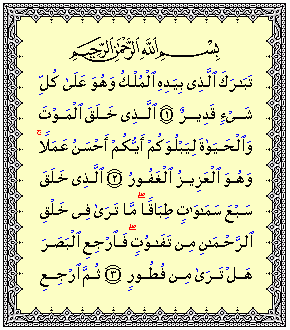 بِسْمِ ٱللَّهِ ٱلرَّحْمَٰنِ ٱلرَّحِيمِ
تَبَٰرَكَ ٱلَّذِى بِيَدِهِ ٱلْمُلْكُ وَهُوَ عَلَىٰ كُلِّ
شَىْءٍ قَدِيرٌ ۝١ ٱلَّذِى خَلَقَ ٱلْمَوْتَ
وَٱلْحَيَوٰةَ لِيَبْلُوَكُمْ أَيُّكُمْ أَحْسَنُ عَمَلًا ۚ
وَهُوَ ٱلْعَزِيزُ ٱلْغَفُورُ ۝٢ ٱلَّذِى خَلَقَ
سَبْعَ سَمَٰوَٰتٍ طِبَاقًا ۖ مَّا تَرَىٰ فِى خَلْقِ
ٱلرَّحْمَٰنِ مِن تَفَٰوُتٍ ۖ فَٱرْجِعِ ٱلْبَصَرَ
هَلْ تَرَىٰ مِن فُطُورٍ ۝٣ ثُمَّ ٱرْجِعِ